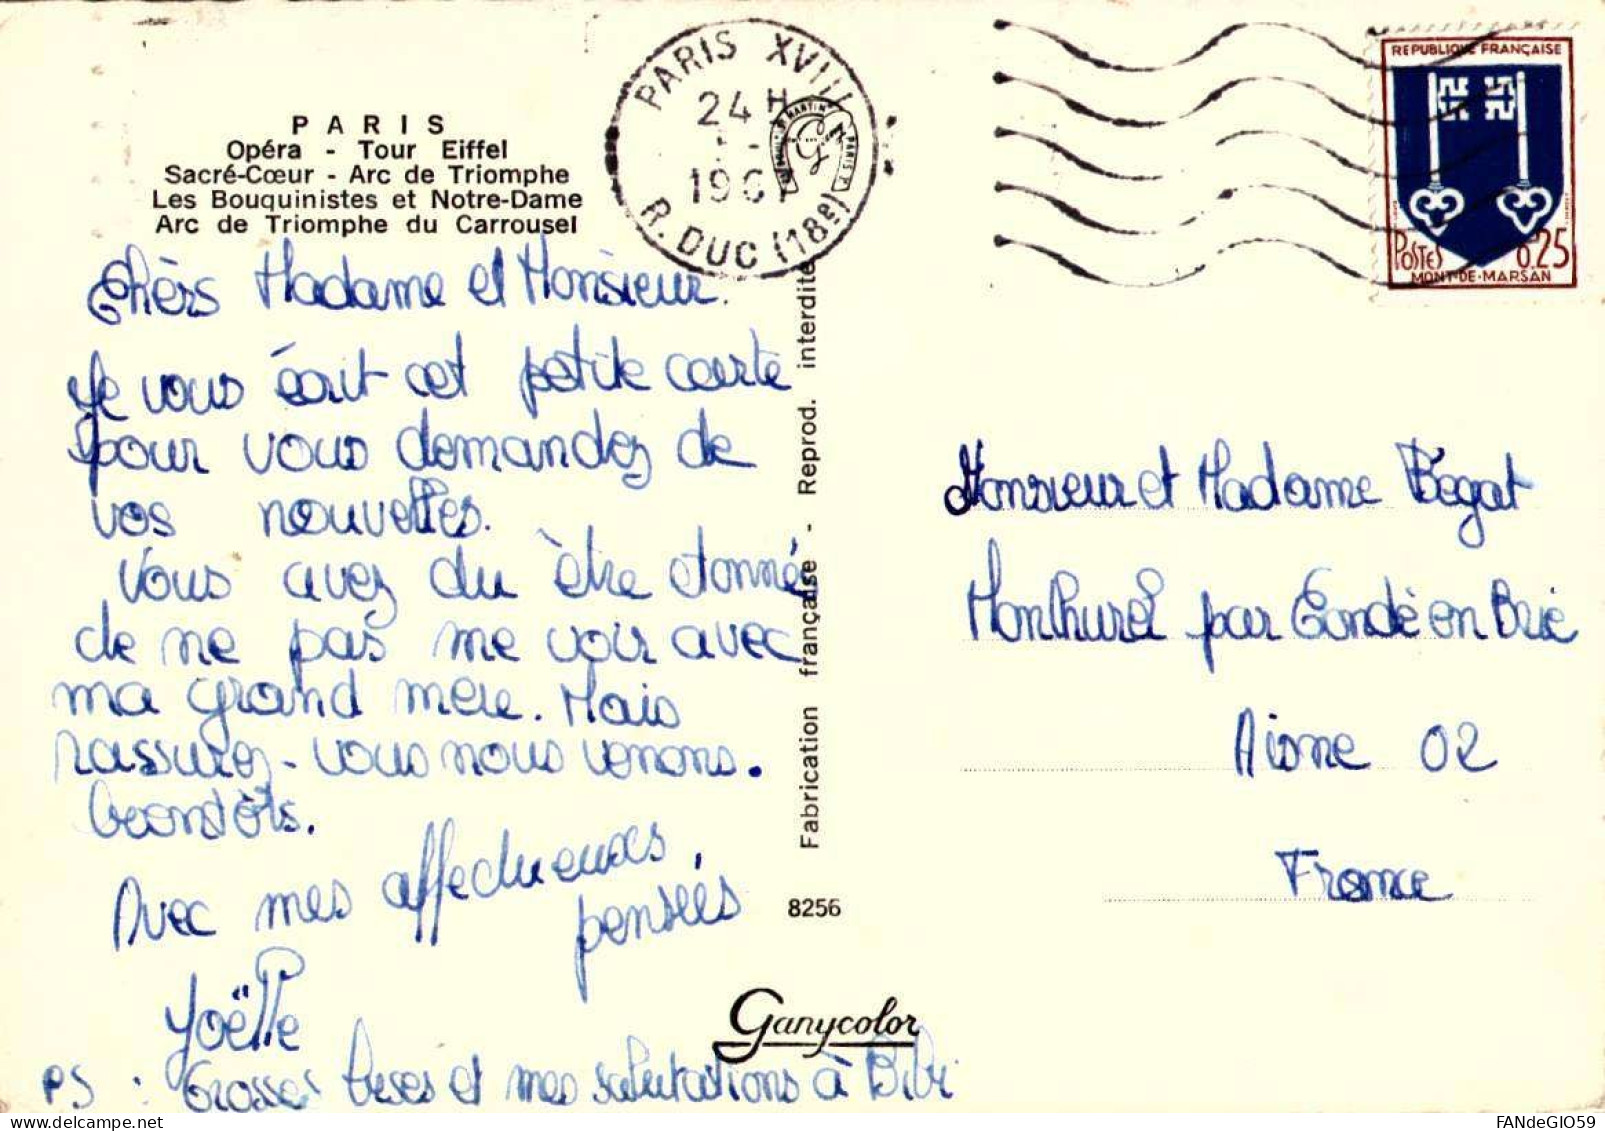 PARIS
Opéra - Tour Eiffel
Sacré-Cœur - Arc de Triomphe
Les Bouquinistes et Notre-Dame
Arc de Triomphe du Carrousel
Chèrs Madame et Monsieur.
Je vous écrit cet petite carte
pour vous demandez de
vos nouvelles.
Vous avez du être etonné
de ne pas me voir avec
ma grand mère. Mais
rassurez-vous nous venons.
bientôts.
Avec mes affectueuses,
pensées
Joëlle
PS : Grosses bises et mes salutations à Bibi
PARIS XVIII
24 H
196
R. DUC (18e)
Fabrication française - Reprod. interdite
8256
Ganycolor
REPUBLIQUE FRANÇAISE
POSTES 0,25
MONT-DE-MARSAN
Monsieur et Madame Bégat
Monthurel par Condé en Brie
Aisne 02
France
www.delcampe.net
FANdeGIO59